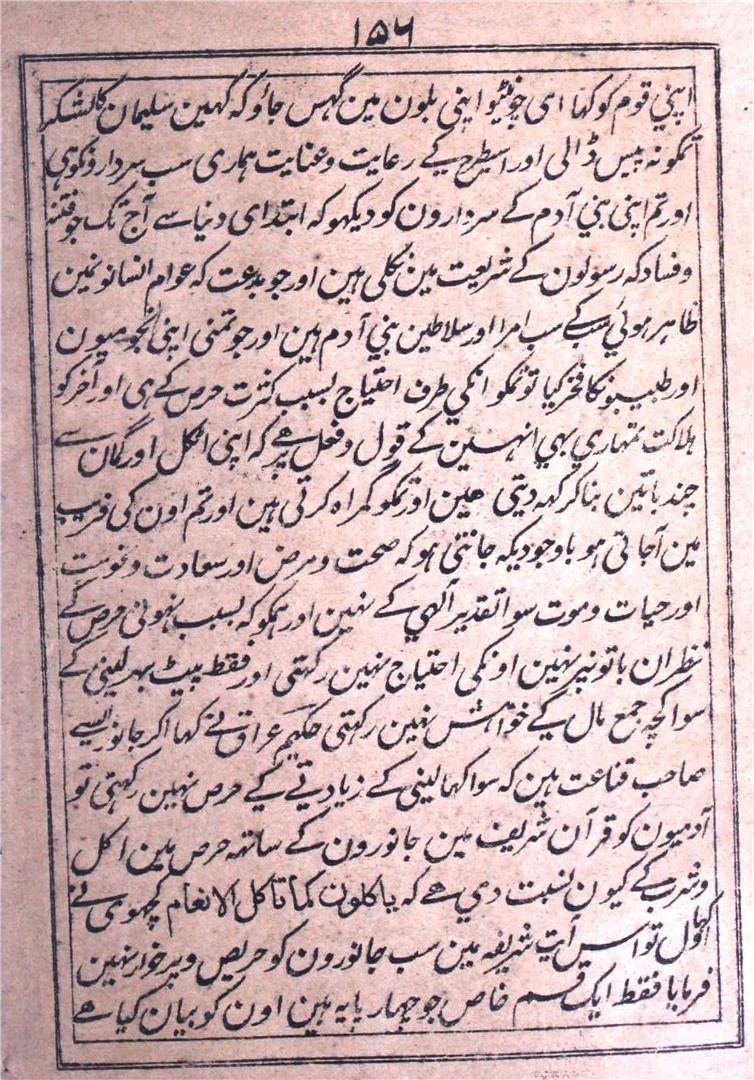 ۱۵۶
اپني قوم کو کہا ای چونٹیو اپنی بلون مین گہس جاؤ کہ کہین سلیمان کا لشکر
تمکو نہ پیس ڈالی اور اسیطرح کے رعایت و عنایت ہماری سب سردارونکو ہی
اور تم اپنی بني آدم کے سردارون کو دیکہو کہ ابتدای دنیا سے آج تک جو فتنہ
و فساد کہ رسولون کے شریعت مین نکلی ہین اور جو بدعت کہ عوام انسانونمین
ظاہر ہوئي سب کے سب امرا اور سلاطین بني آدم ہین اور جو تمنی اپنی نجومیون
اور طبیبونکا فخر کیا تو تمکو انکي طرف احتیاج بسبب کثرت حرص کے ہی اور آخر کو
ہلاکت تمہاري بہي انہین کے قول و فعل پر ہے کہ اپنی اٹکل اور گمان سے
چند باتین بناکر کہہ دیتی ہین اور تمکو گمراہ کرتی ہین اور تم اون کی فریب
مین آجاتی ہو باوجودیکہ جانتی ہو کہ صحت و مرض اور سعادت و نحوست
اور حیات و موت سوا تقدیر الٰہي کے نہین اور ہمکو کہ بسبب نہونی حرص کے
نظر ان باتونپر نہین اونکی احتیاج نہین رکہتی اور فقط پیٹ بہر لینی کے
سوا کچہ جمع مال کے خواہش نہین رکہتی حکیم عراق نے کہا اکر جانور ایسے
صاحب قناعت ہین کہ سوا کہا لینی کے زیادتے کے حرص نہین رکہتی تو
آدمیون کو قرآن شریف مین جانورون کے ساتہہ حرص مین اکل
و شرب کے کیون نسبت دي ہے کہ یاکلون کما تاکل الانعام کچہوی نے
کہا اول تو اس آیت شریفہ مین سب جانورون کو حریص و پرخوار نہین
فرمایا فقط ایک قسم خاص جو چہار پایہ ہین اون کو بیان کیا ہے